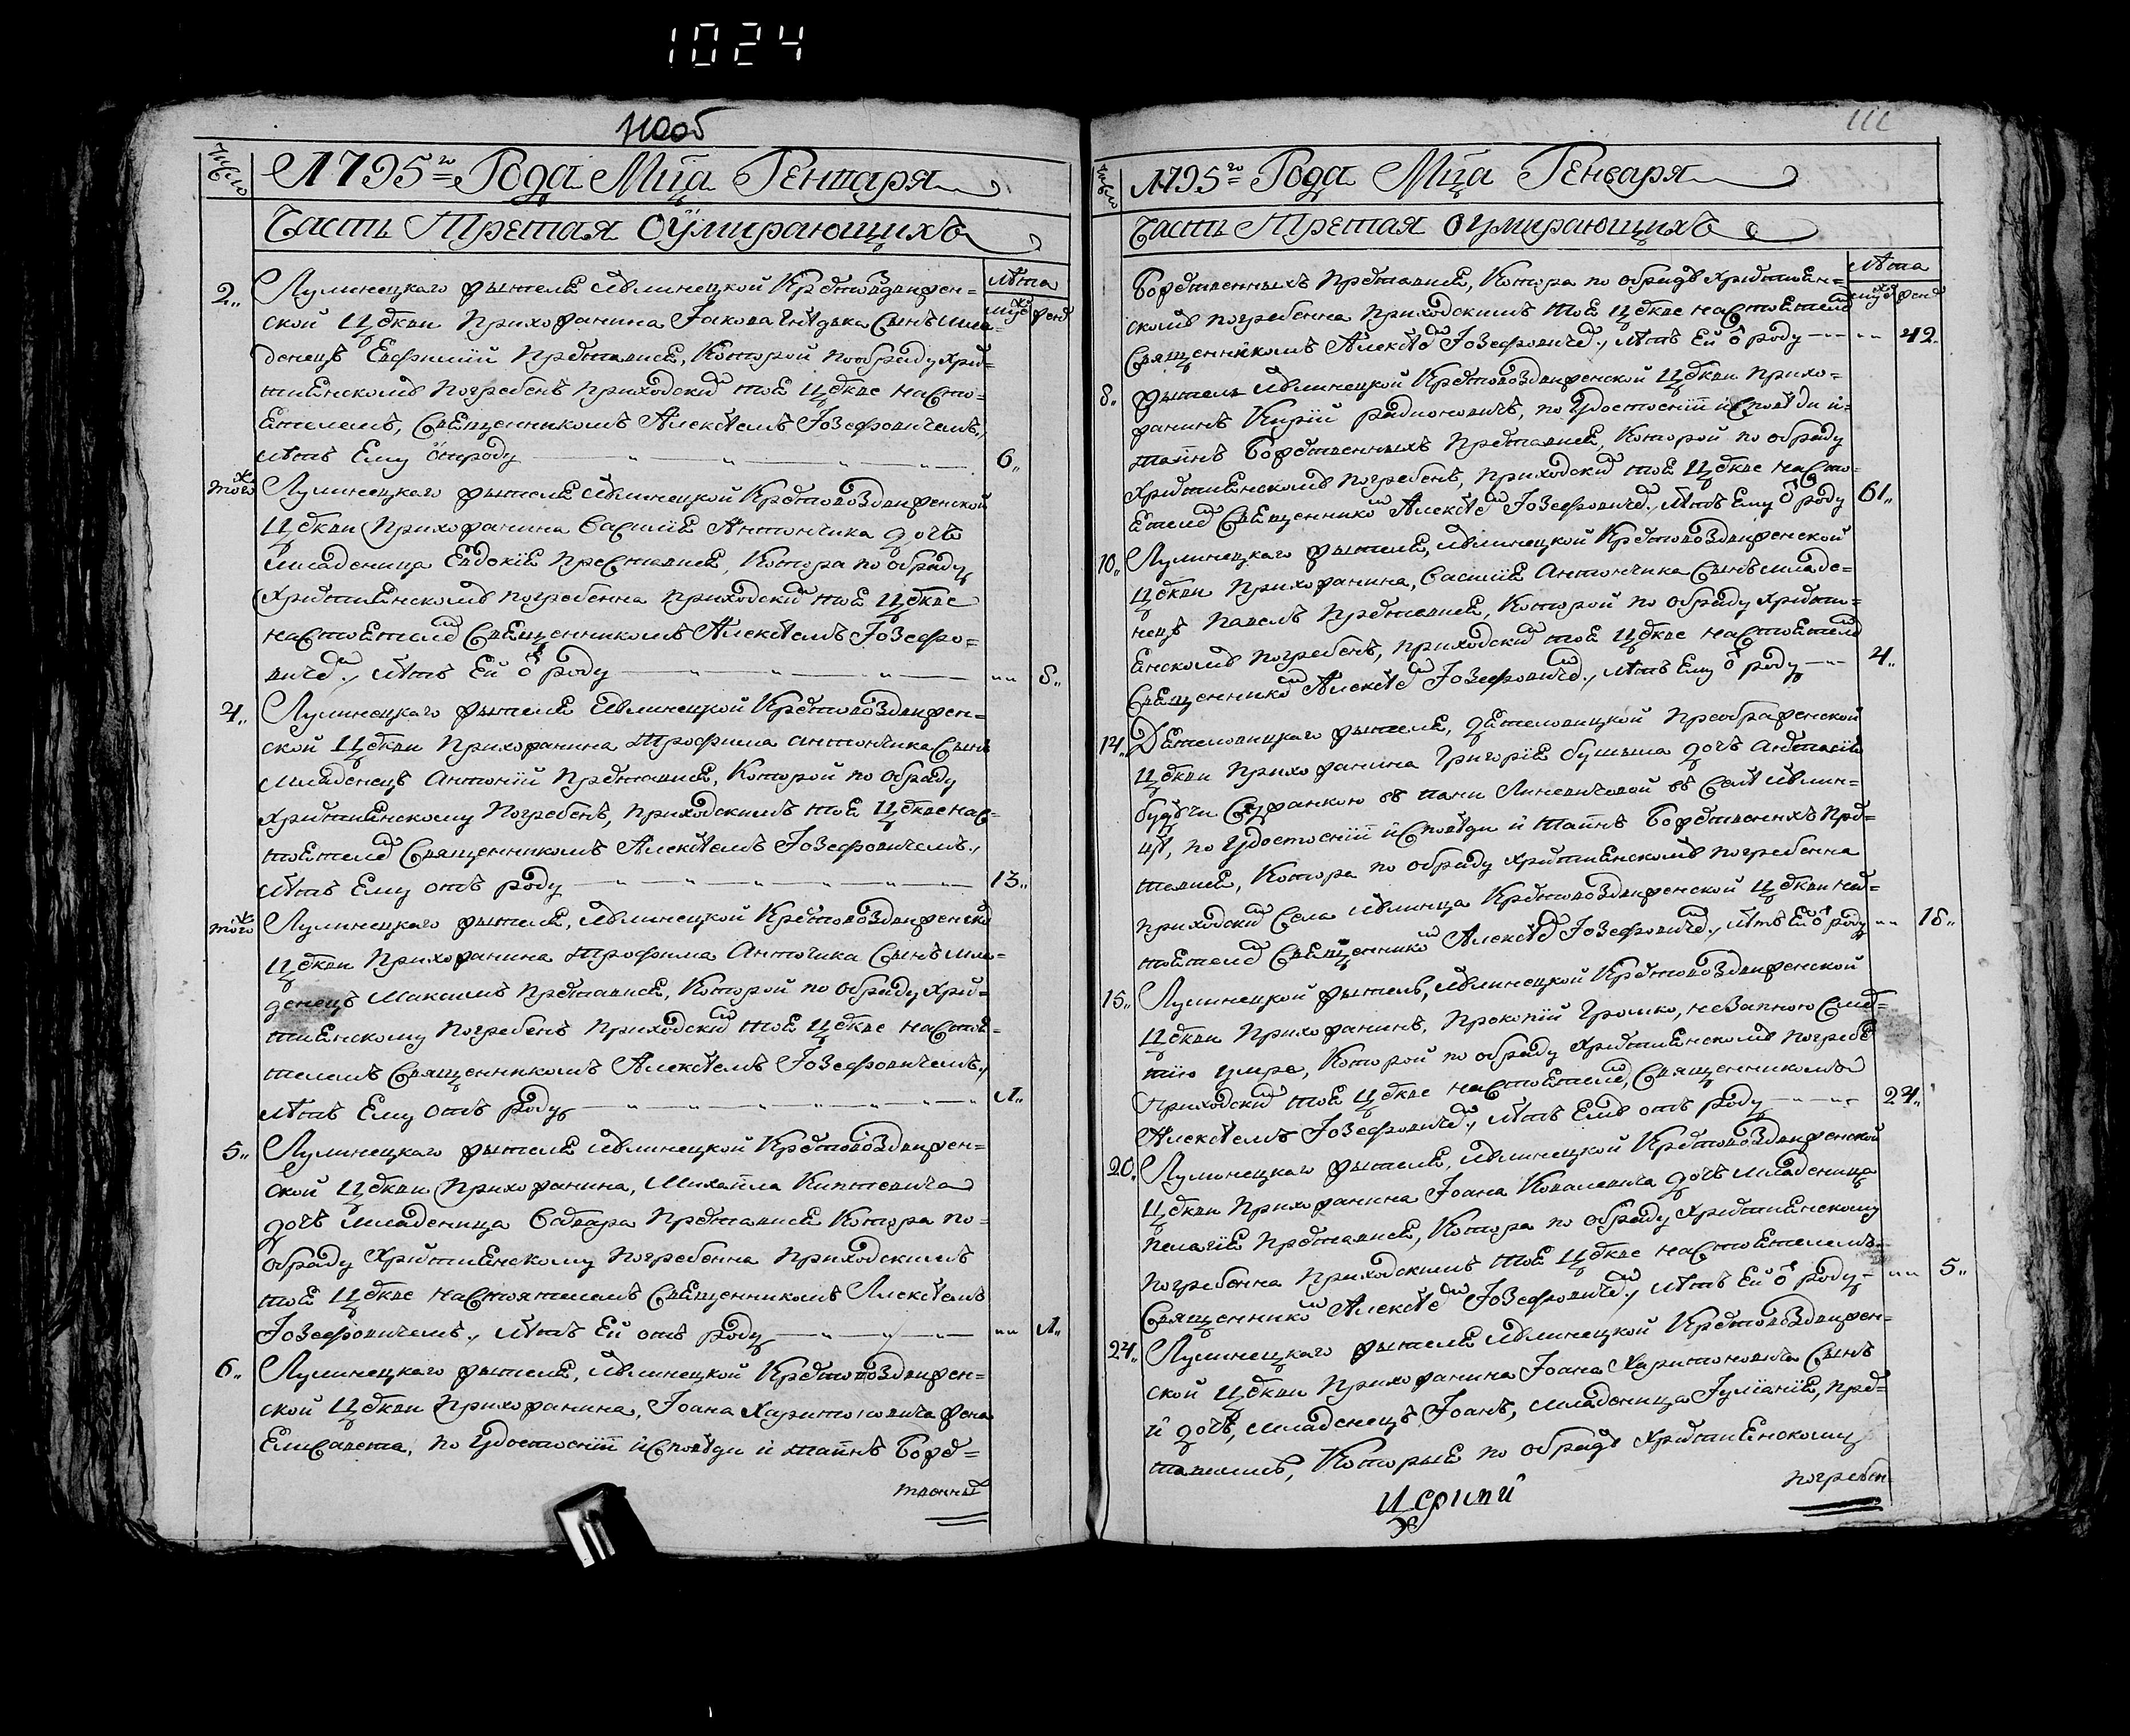 1024
110об
Число
1795го Года Мца Генваря
Часть Третая Оумирающихъ
Лѣта
муж жен
2,, Лулинецкаго жителя Явлинецкой Крстовоздвижен=
ской Цркви Прихожанина Іакова Сынъ Мла=
денецъ Евфимій Прставися, Которой по обряду Хри=
стиянскомъ погребенъ приходским тоя Цркве насто=
ятелемъ, Священникомъ Алексѣемъ Іозефовичемъ,
лѣтъ Ему отроду 6,,
того Лулинецкаго жителя Явлинецкой Крстовоздвиженской
Цркви Прихожанина Василія Антончика дочь
младеница Евдокія преставися, Котора по обряду
Християнскомъ погребенна приходским тоя Цркве
настоятелем Священникомъ Алексѣемъ Іозефо=
вичем, лѣтъ Ей о роду 8,,
4,, Лулинецкаго жителя Явлинецкой Крстовоздвижен=
ской Цркви Прихожанина Трофима антончика Сынъ
Младенецъ Антоній Прставися, Которой по обряду
Християнскому погребенъ, приходскимъ тоя Цркве нас=
тоятелем Священникомъ Алексѣемъ Іозефовичемъ,
лѣтъ Ему отъ роду 13,,
того Лулинецкаго жителя, Явлинецкой Крстовоздвиженско
Цркви Прихожанина трофима Анточика Сынъ мла=
денецъ Максимъ Прставися, Которой по обряду Хри=
стиянскому погребенъ Приходским тоя Цркве настоя=
телемъ Священникомъ Алексѣемъ Іозефовичемъ,
лѣтъ Ему отъ роду 1,,
5,, Лулинецкаго жителя Явлинецкой Крстовоздвижен=
ской Цркви Прихожанина, Михаила Киптевича
дочь младеница Варвара Прставися Котора по=
обряду Християнскому погребенна Приходскимъ
тоя Цркве настоятелемъ Священникомъ Алексѣемъ
Іозефовичемъ, лѣтъ Ей отъ роду 1,,
6,, Лулинецкаго жителя, Явлинецкой Крстовоздвижен=
ской Цркви Прихожанина, Іоана Харитоновича жена
Елисавета, по Удостоеніи исповѣди и таинъ Бож=
твенных
111
Число
1795го Года Мца Генваря
Часть Третая Оумирающихъ
Лѣта
муж жен
Божственныхъ Прставися, Котора по обрядѣ Християн=
скомъ погребенна приходскимъ тоя Цркве настоятелем
Священникомъ Алексѣем Іозефовичем, лѣтъ Ей о роду 42,
8,, житель Явлинецкой Крстовоздвиженской Цркви Прихо=
жанинъ Кирій радионовичъ, по Удостоеніи исповѣди и=
таинъ Божственныхъ Прставися, Которой по обряду
Християнскомъ погребенъ, приходским тоя Цркве насто=
ятелем Священником Алексѣем Іозефовичем, лѣтъ Ему о роду 61,,
10,, Лулинецкаго жителя, Явлинецкой Крстовоздвиженской
Цркви Прихожанина, Василія Антончика Сынъ младе=
нецъ Павелъ Прставися, Которой по обряду Христи=
янскомъ погребенъ, приходским тоя Цркве настоятелем
Священником Алексѣем Іозефовичем, лѣтъ Ему о роду 4,,
14,, Дятеловицкаго жителя, дятеловицкой Преображенской
Цркви Прихожанина Григорія бумыша дочь Анастасія
будучи Служанкою въ пани Линевичовой въ Селѣ Явлин=
цѣ, по Удостоеніи исповѣди и Таинъ Божственнихъ Прд=
тавися, Котора по обряду Християнскомъ погребенна
приходским Села Явлинца Крстовоздвиженской Цркви нас=
тоятелем Священником Алексѣем Іозефовичем, лѣтъ Ей о роду 18,,
15,, Лулинецкой житель, Явлинецкой Крстовоздвиженской
Цркви Прихожанинъ, Прокопій Громко, незапною Смер=
тію умре, Которой по обряду Християнскомъ погребе
Приходским тоя Цркве настоятелем, Священникомъ
Алексѣемъ Іозефовичем, лѣтъ Емъ отъ роду 24,
20, Лулинецкаго жителя, Явлинецкой Крстовоздвиженской
Цркви Прихожанина Іоана Ковалевича дочь младеница
Пелагія Прставися, Котора по обряду Християнскому
погребенна Приходскимъ тоя Цркве настоятелемъ
Священником Алексѣем Іозефовичем, лѣтъ Ей о роду 5,,
24,, Лулинецкаго жителя Явлинецкой Крстовоздвижен=
ской Цркви Прихожанина Іоана Харитоновича Сынъ
и дочь, младенецъ Іоанъ, младеница Іуліянія, прд=
тавилися, Которые по обрядѣ Християнскому
погребен